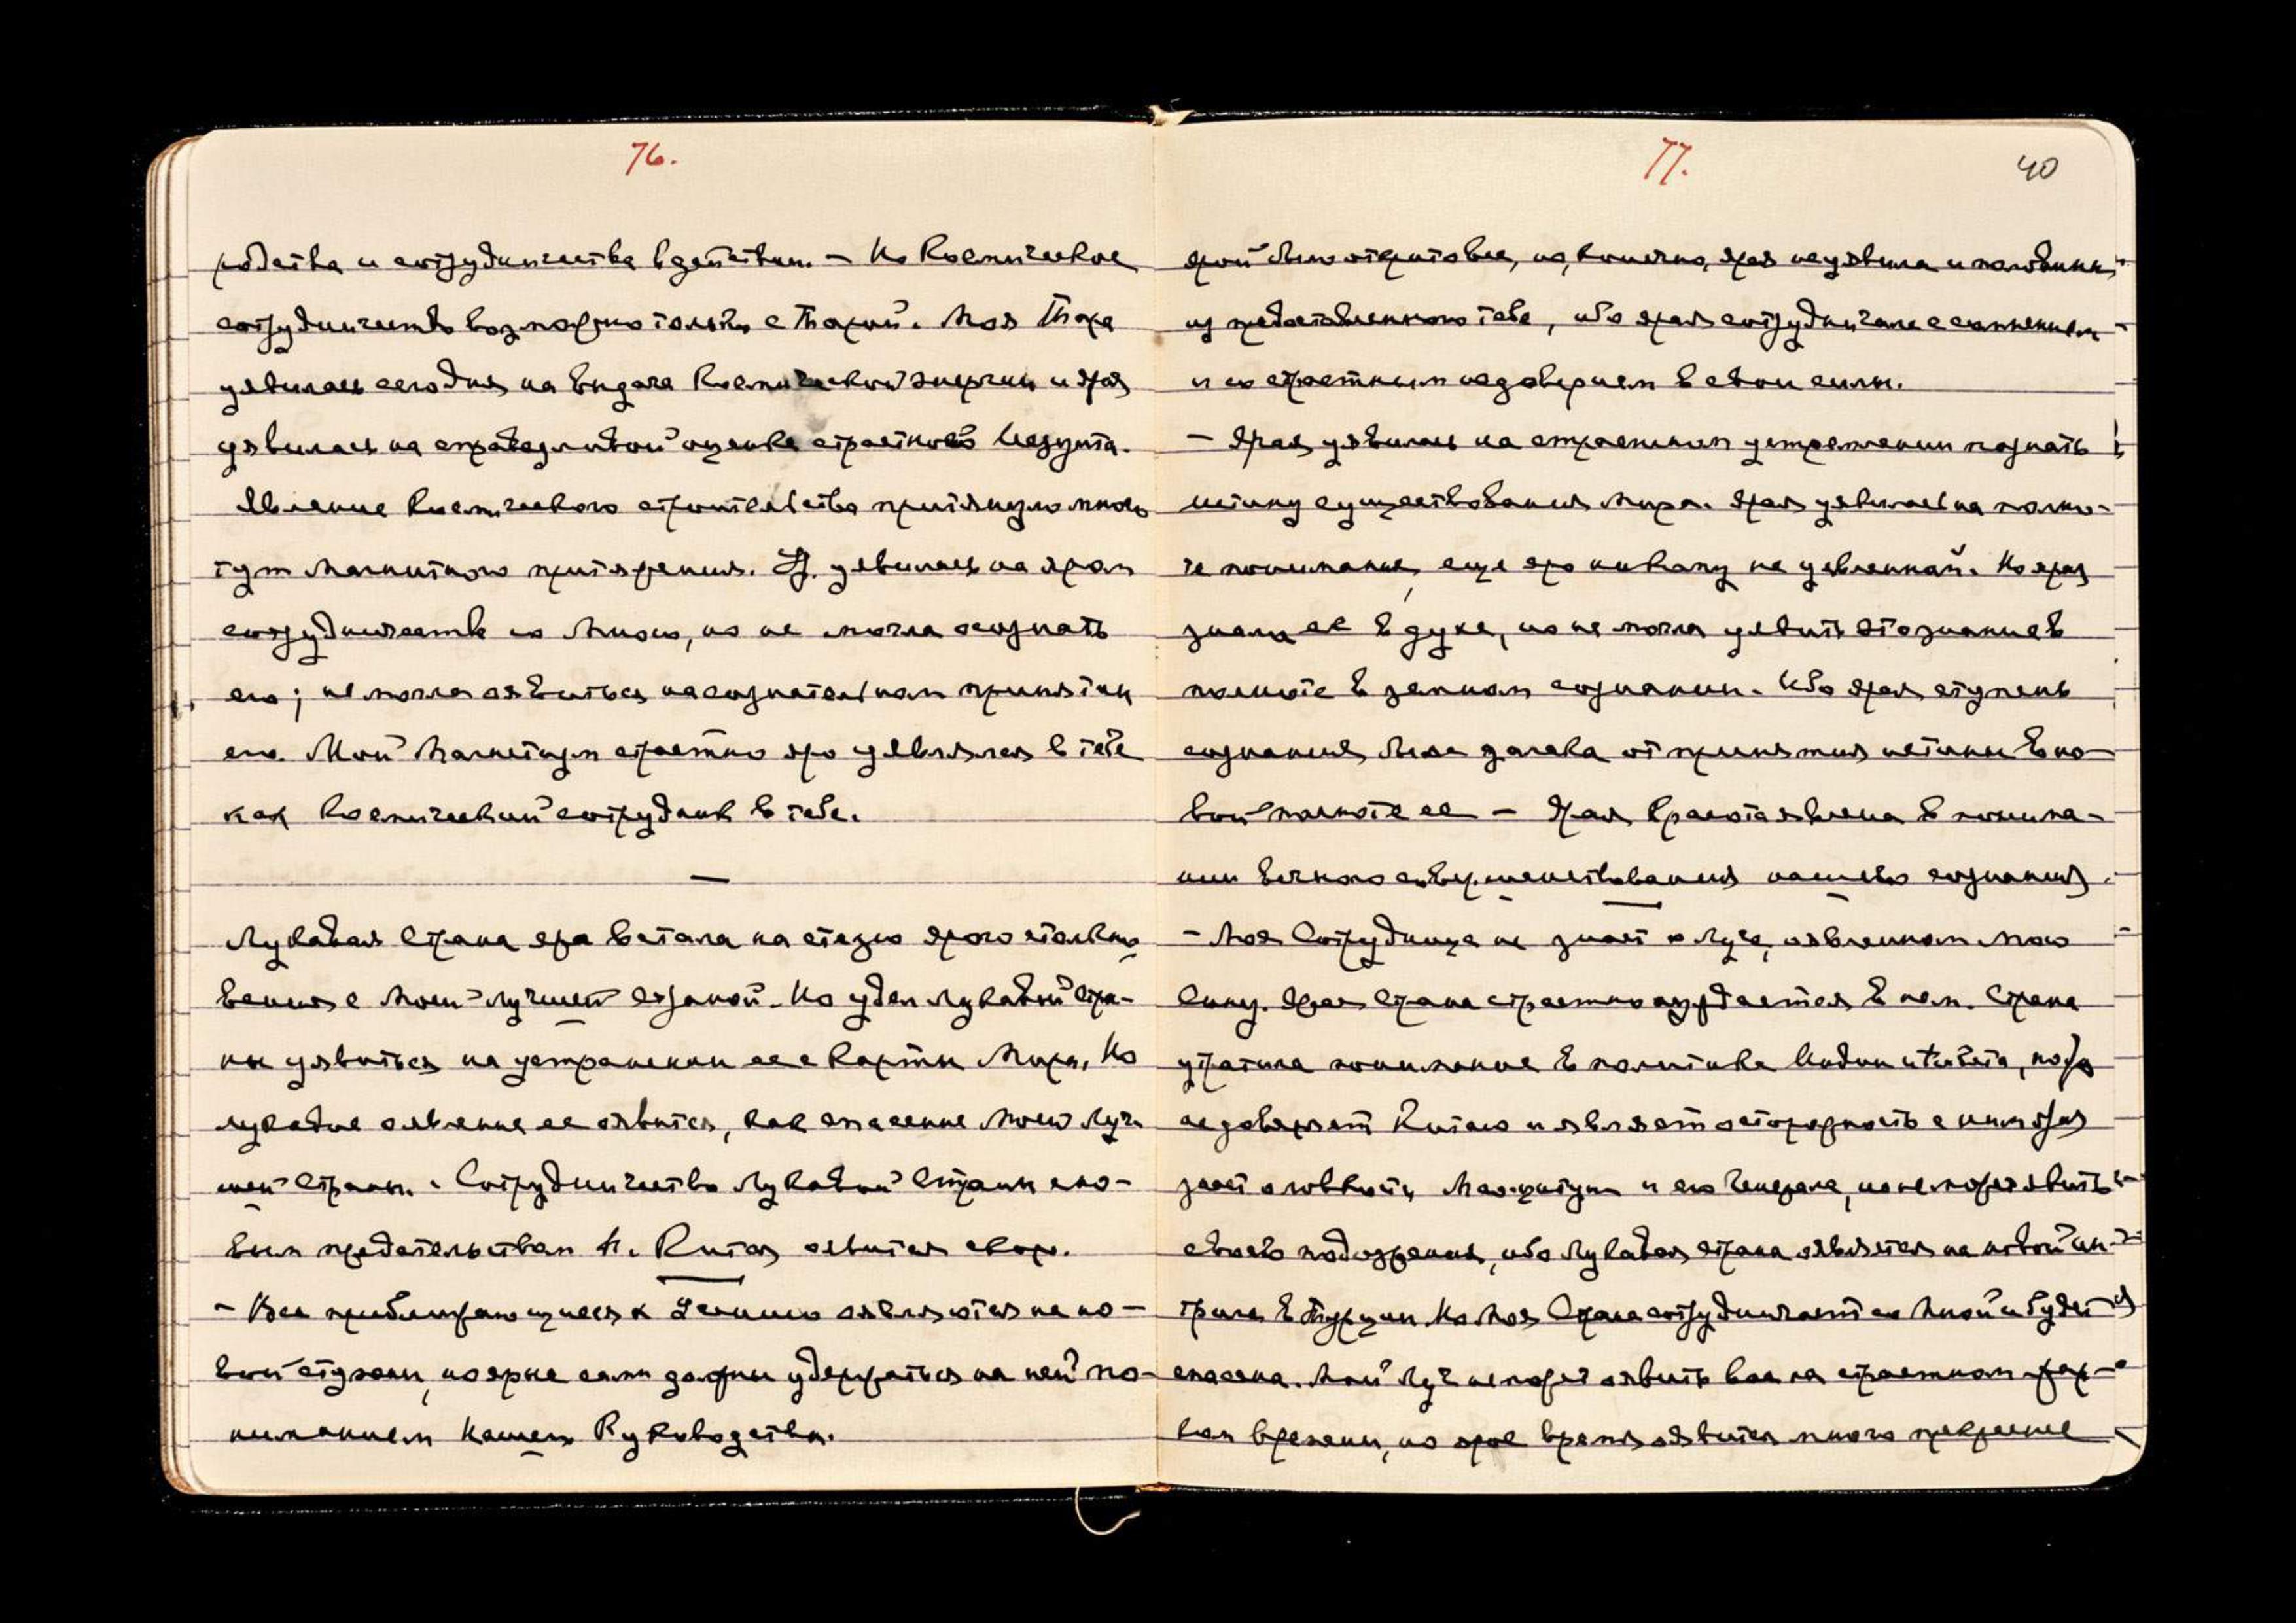 76.
родства и сотрудничества в действии. — Но Космическое
сотрудничество возможно только с Тарой. Моя Тара
уявилась сегодня на выдаче Космической энергии и ярая
уявилась на справедливой оценке страстного Иезуита.
Явление Космического строительства притянуло много
тут магнитного притяжения. Я. уявилась на яром
сотрудничестве со Мною, но не могла осознать
его; не могла оявиться на сознательном принятии
его. Мой Магнетизм страстно яро уявлялся в тебе
как Космический сотрудник в тебе.
—
Лукавая Страна яра встала на стезю ярого столкно-
вения с Моей лучшей Страной. Но удел Лукавой Стра-
ны уявиться на устранении ее с карты Мира. Но
лукавое явление ее оявится, как спасение Моей Луч-
шей Страны. Сотрудничество Лукавой Страны с но-
вым предательством Н. Китая оявится скоро.
— Все приближающиеся к Учению оявляются на но-
вой ступени, но ярые сами должны удержаться на ней по-
ниманием Нашего Руководства.
77.
40
ярой было открыто все, но, конечно, ярая не уявила и половины
из предоставленного тебе, ибо ярая сотрудничала с сомнением
и со страстным недоверием в свои силы.
— Ярая уявилась на страстном устремлении познать
истину существования Мира. Ярая уявилась на полно-
те понимания, еще яро никому не уявленной. Но ярая
знала ее в духе, но не могла уявить это знание в
полноте в земном сознании. Ибо ярая ступень
сознания была далека от принятия истины в но-
вой полноте ее — Ярая Красота явлена в понима-
нии вечного совершенствования нашего сознания.
— Моя Сотрудница не знает о Луче, оявленном Мною
Сину. Ярая Страна страстно нуждается в нем. Страна
утратила понимание в политике Индии и Тибета, когда
доверяет Китаю и являет осторожность с ним ярая
знает о ловкости Мао-цзетуна и его Генерала, но не может явить
своего подозрения, ибо Лукавая страна оявляется на новой ин-
триге в Турции. Но Моя Страна сотрудничает со Мной и будет
спасена. Мой Луч не может оявить вам на страстном
времени, но ярое время оявится много прекраснее